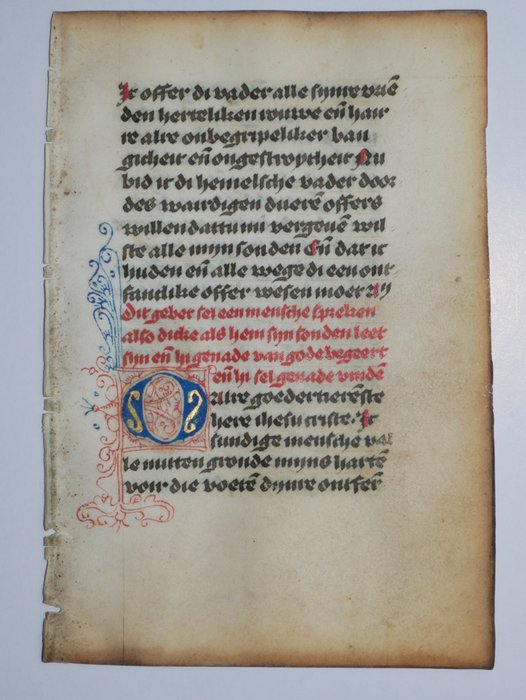 Ic offer di vader alle sijnre vrüē
den herteliken rouwe eñ hair
re alre onbegripeliker ban
gicheit eñ ongestuyticheit Nu
bid ic di hemelsche vader door
des waerdigen dueren offers
willen dattu mi vergeuē wil
ste alle mijn sonden eñ dat ic
huden eñ alle wege di een ont
fanclike offer wesen moet
Dit gebet sel een mensche spreken
also dicke als hem sijn sonden leet
sijn eñ hi genade van gode begeert
eñ hi sel genade vinden
O Alre goedertierenste
here ihesu criste. Ic
sundige mensche val
le mitten gronde mijns hartē
voir die voeten dijnre ontfer